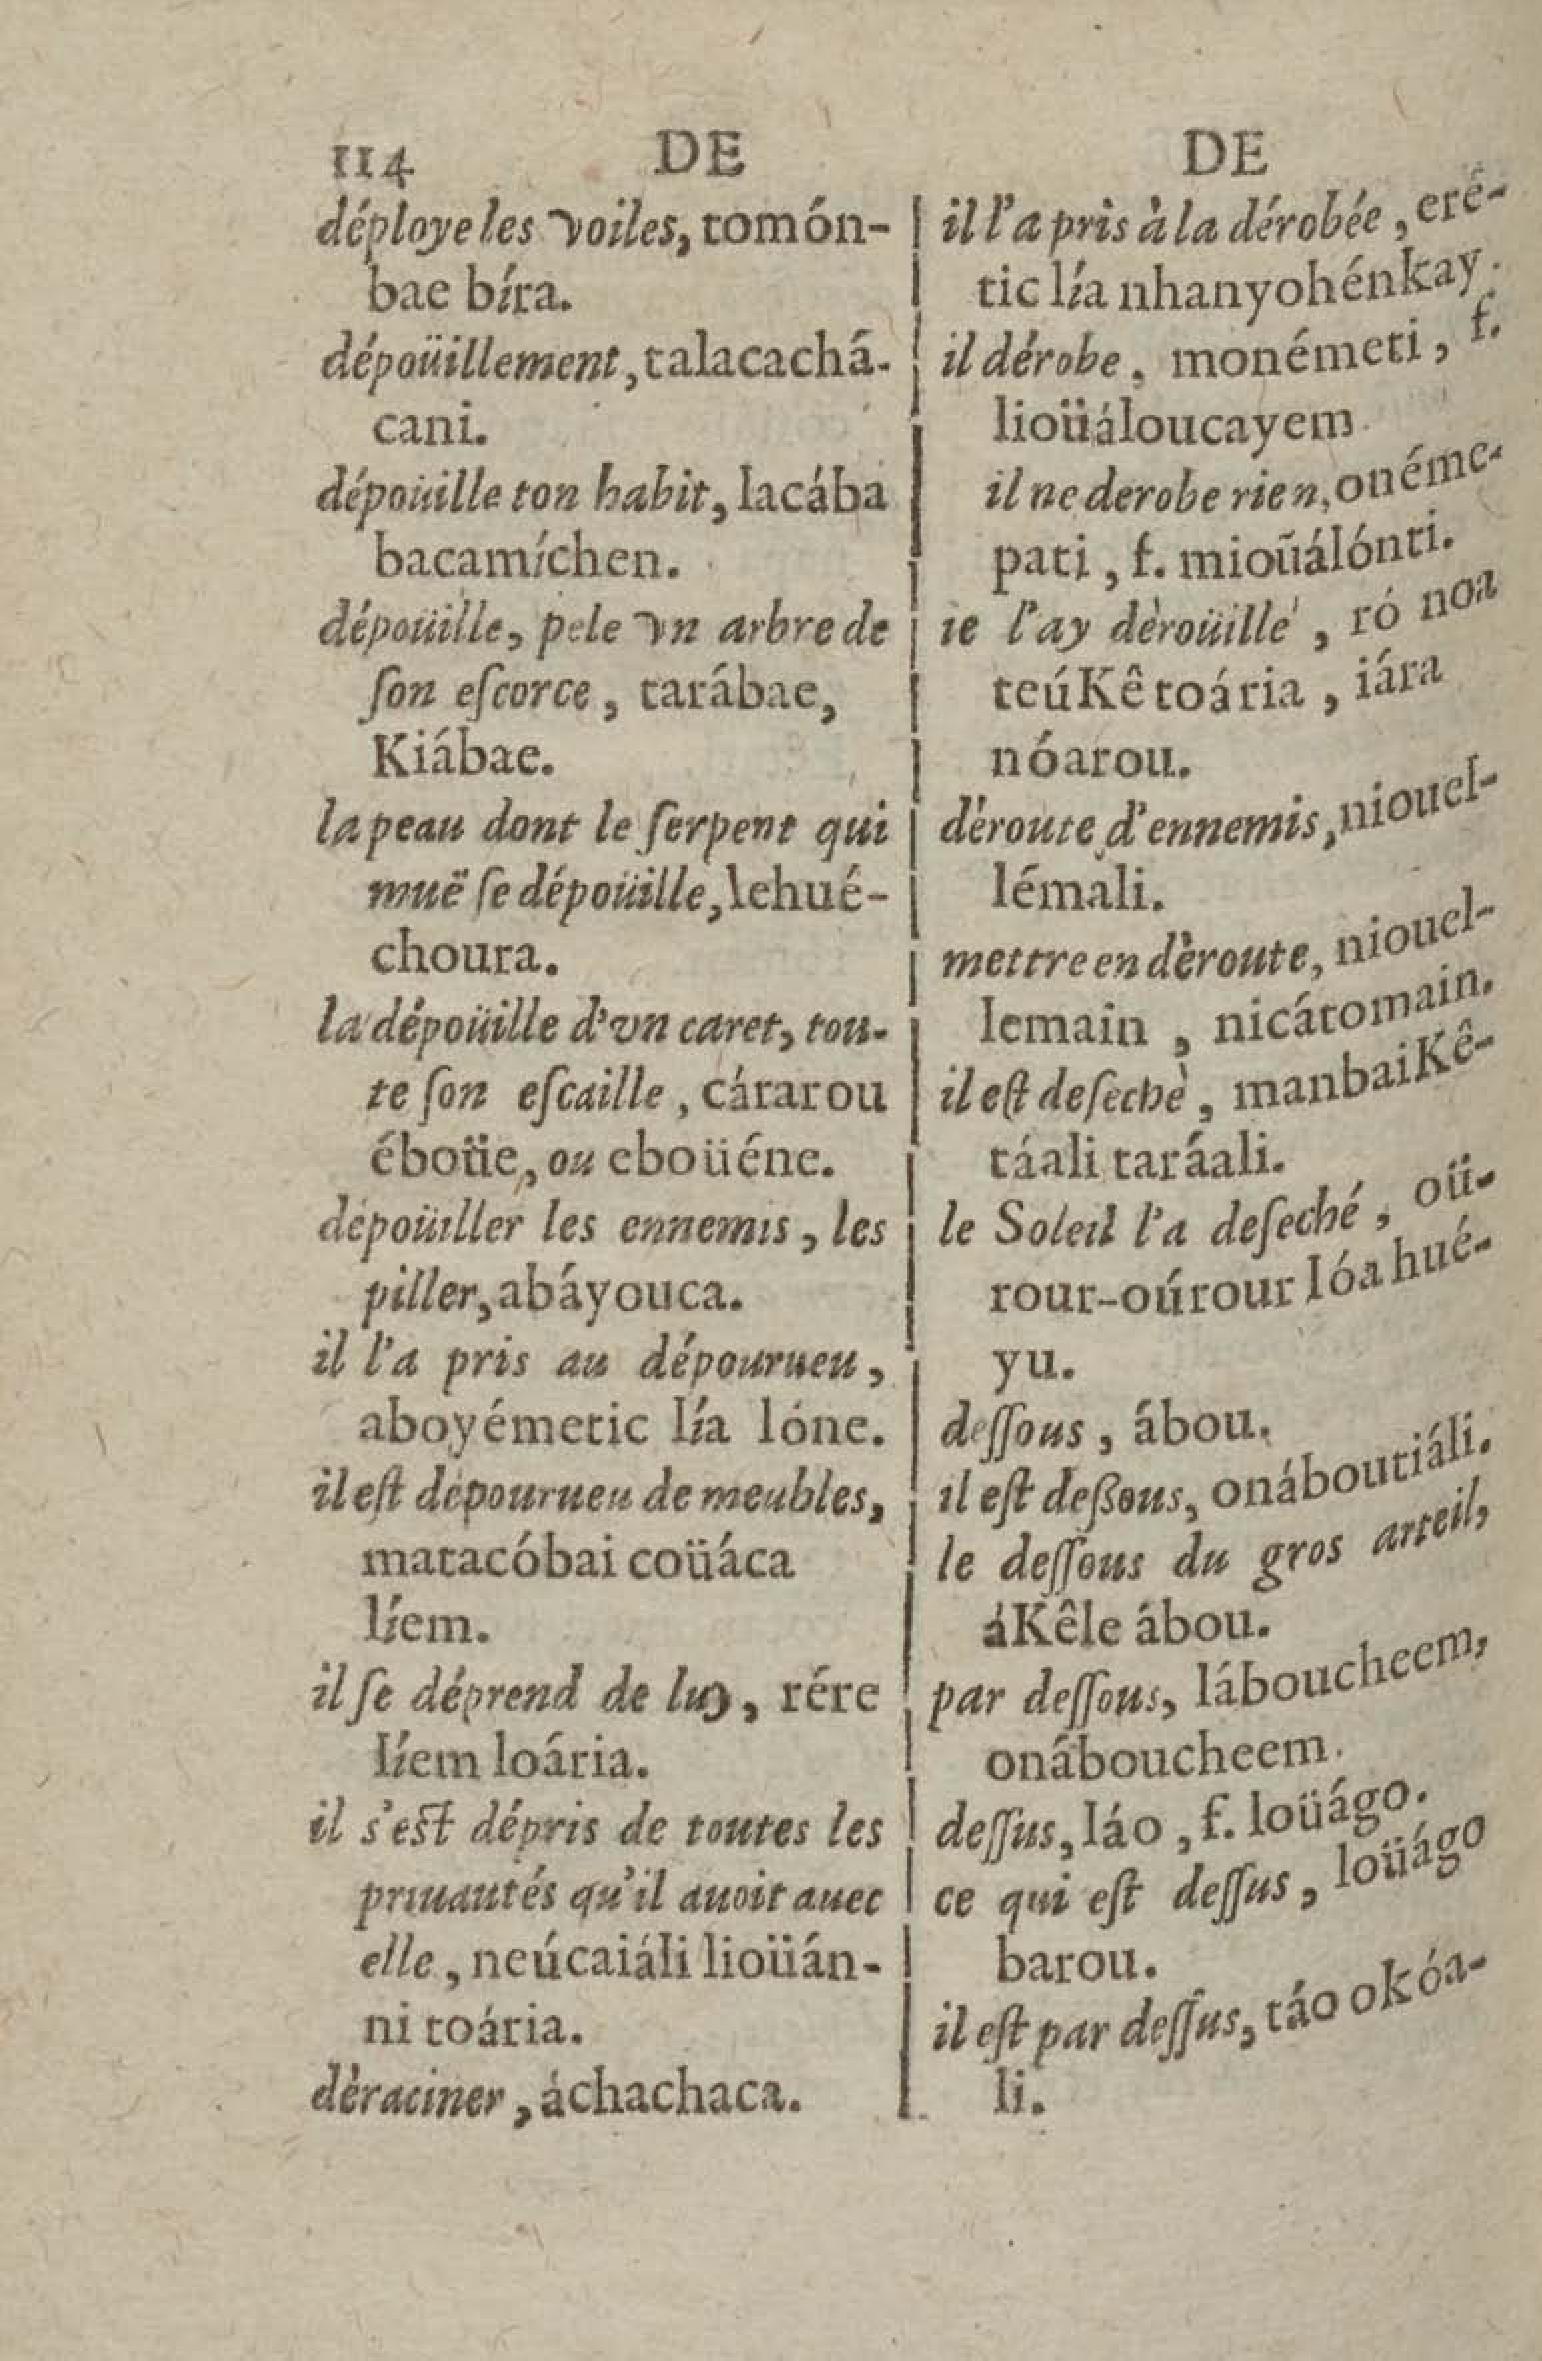 114 DE DE
déploye les voiles, tomón-
bae bíra.
dépoüillement, talacachá-
cani.
dépoüille ton habit, lacába
bacamíchen.
dépoüille, pele vn arbre de
ſon eſcorce, tarábae,
Kiábae.
la peau dont le ſerpent qui
muë ſe dépoüille, lehué-
choura.
la dépoüille d'vn caret, tou-
te ſon eſcaille, cárarou
éboüe, ou eboüéne.
dépoüiller les ennemis, les
piller, abáyouca.
il l'a pris au dépourueu,
aboyémetic lía lóne.
il eſt dépourueu de meubles,
matacóbai coüáca
líem.
il ſe déprend de luy, rére
líem loária.
il s'eſt dépris de toutes les
priuautés qu'il auoit auec
elle, neúcaiáli lioüán-
ni toária.
dèraciner, áchachaca.
il l'a pris à la dérobée, eré-
tic lía nhanyohénkay.
il dérobe, monémeti, f.
lioüáloucayem
il ne derobe rien, onéme-
pati, f. mioüálónti.
ie l'ay dèroüillé, ró noa
teúKê toária, iára
nóarou.
déroute d'ennemis, niouel-
lémali.
mettre en dèroute, niouel-
lemain, nicátomain.
il eſt deſechè, manbaiKê-
táali taráali.
le Soleil l'a deſeché, oü-
rour-oúrour lóa hué-
yu.
deſſous, ábou.
il eſt deßous, onáboutiáli.
le deſſous du gros arteil,
áKêle ábou.
par deſſous, láboucheem,
onáboucheem.
deſſus, láo, f. loüágo.
ce qui eſt deſſus, loüágo
barou.
il eſt par deſſus, táo okóa-
li.